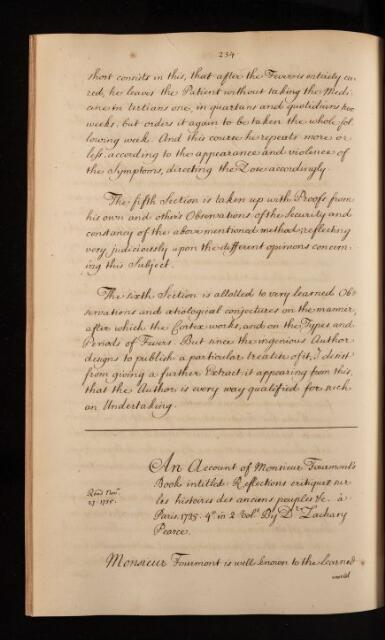 234
short consists in this, that after the Fever is entirely cu-
red, he leaves the Patient without taking the Medi-
cine in tertians one, in quartans and quotidians two
weeks, but orders it again to be taken the whole fol
lowing week. And this course he repeats more or
less, according to the appearance and violence of
the Symptoms, directing the Dose accordingly.
The fifth Section is taken up with Proofs from
his own and other's Observations of the Security and
constancy of the above mentioned method; reflecting
very judiciously upon the different opinions concern-
ing this Subject.
The sixth Section is allotted to very learned Ob-
servations and ætiological conjectures on the manner,
after which the Cortex works, and on the Types and
Periods of Fevers. But since the ingenious Author
designs to publish a particular treatise of it, I desist
from giving a further Extract it appearing from this,
that the Author is every way qualified for such
an Undertaking.
An Account of Monsieur Fourmont's
Book intitled Reflections critiques sur
les histoires des anciens peuples &c. à
Paris. 1735. 4º. in 2 Vol.s By Dr. Zachary
Pearce.
Read Novr.
27. 1735.
Monsieur Fourmont is well known to the learned
world